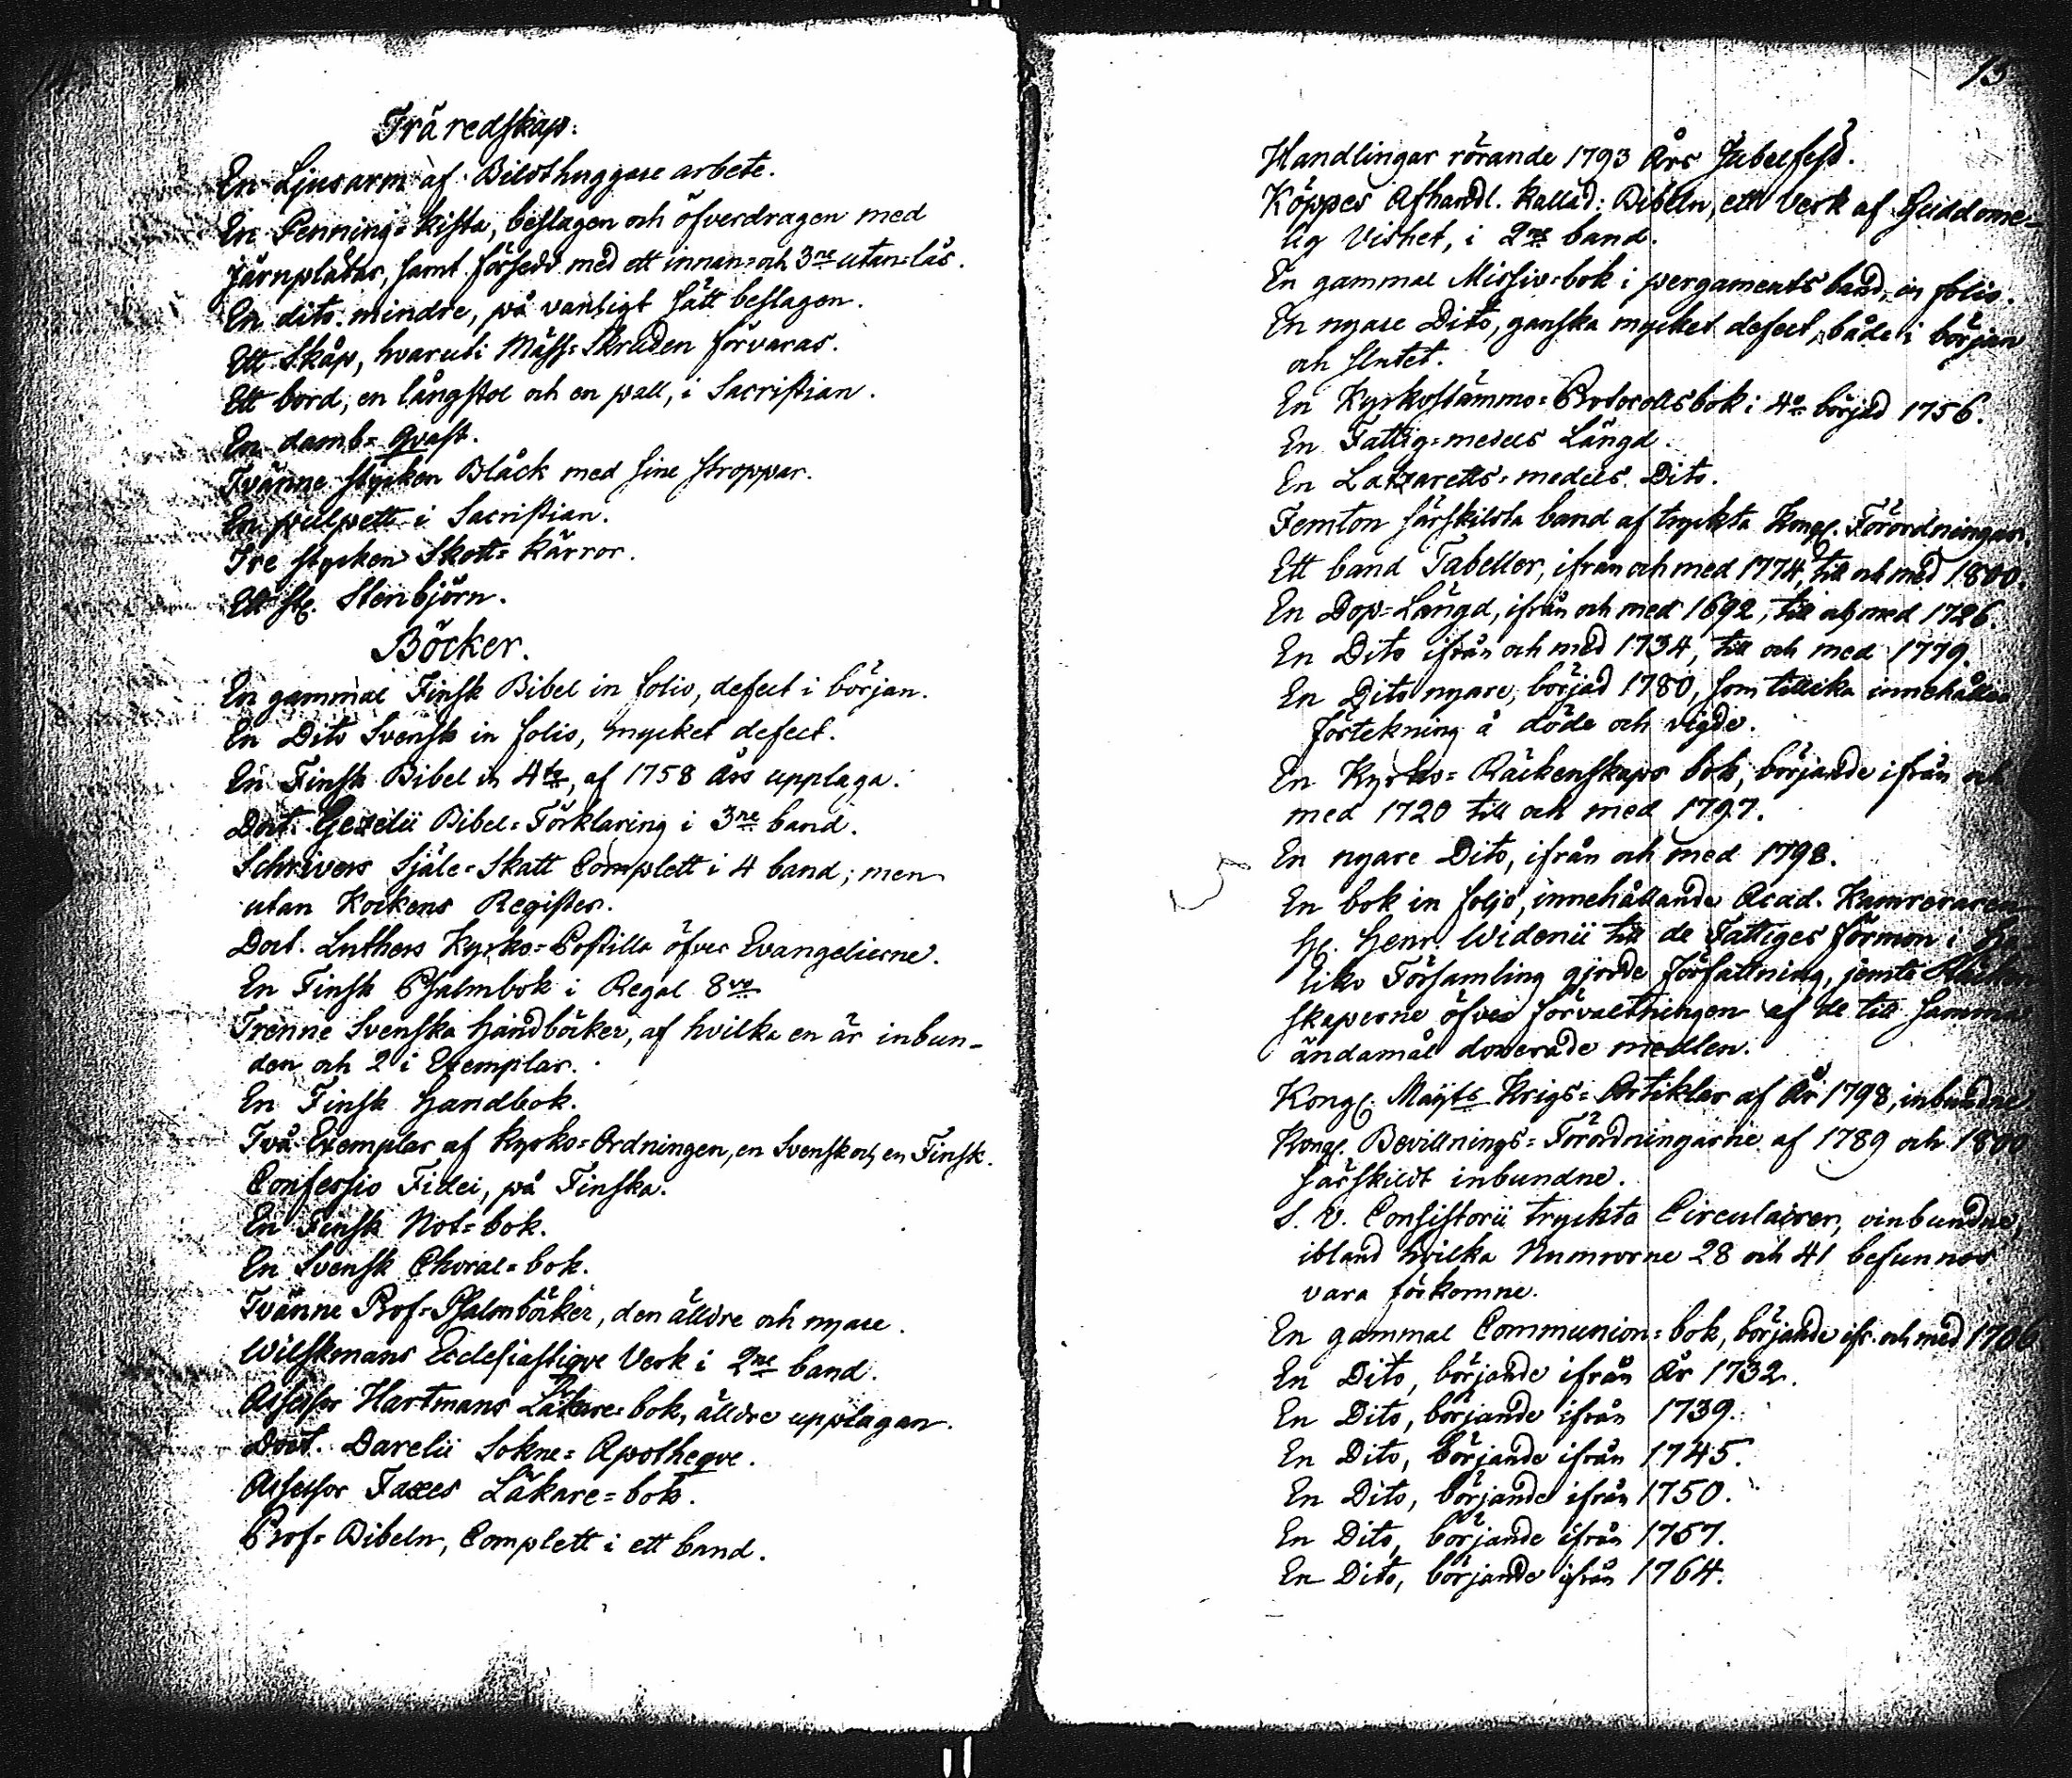 Träredskap.
En Ljusarm af Bildthuggare arbete.
En Penning=kista, beslagen och öfverdragen med
järnplåtar, samt försedd med ett innan= och 3ne utan=lås.
En dito mindre, på vanligt sätt beslagen.
Ett Skåp, hvaruti Mäss=Skruden förvaras.
Ett bord, en långstol och en pall, i Sacristian.
En damb=Qvast.
Tvänne stycken Bläck med sine stroppar.
En pullpett i Sacristian.
Tre stycken Skott=kärror.
Ett st. Stenbjörn.
Böcker.
En gammal Finsk Bibel in folio, defect i början.
En Dito Svensk in folio, mycket defect.
En Finsk Bibel in 4to, af 1758 Års upplaga.
Doct. Gezelii Bibel=Förklaring i 3ne band.
Schrivers Själe=Skatt Complett i 4 band; men
utan Kockens Register.
Doct. Luthers Kyrko=Postilla öfver Evangelierne.
En Finsk Psalmbok i Regal 8vo
Trenne Svenska Handböcker, af hvilka en är inbun-
den och 2 i Exemplar.
En Finsk Handbok.
Två Exemplar af Kyrko=Ordningen, en Svensk och en Finsk.
Confessio Fidei, på Finska.
En Finsk Not=bok.
En Svensk Choral=bok.
Tvänne Prof=Psalmböcker, den älldre och nyare.
Wilskmans Ecclesiastiqve Verk i 2ne band.
Assessor Hartmans Läkare=bok, älldre upplagan.
Doct. Darelii Sokne=Apotheqve.
Assessor Faxes Läkare=bok.
Prof=Bibeln, Complett i ett band.
13
Handlingar rörande 1793 Års Jubelfest.
Köppes Afhandl. kallad: Bibeln, ett Verk af Guddome-
lig Vishet, i 2ne band.
En gammal Missiv=bok i pergaments band, in folio.
En nyare Dito, ganska mycket defect, både i början
och slutet.
En Kyrkostämmo=Protocollsbok i 4o börjad 1756.
En Fattig=medels Längd.
En Lazaretts=medels Dito.
Femton särskildta band af tryckta Kongl. Förordningar.
Ett band Tabeller, ifrån och med 1774, till och med 1800.
En Dop=Längd, ifrån och med 1692, till och med 1726.
En Dito ifrån och med 1734, till och med 1779.
En Dito nyare, börjad 1780, som tillika innehåller
förtekning å döde och vigde.
En Kyrko=Räkenskaps bok, börjande ifrån och
med 1720 till och med 1797.
En nyare Dito, ifrån och med 1798.
En bok in folio, innehållande Acad. Kamreraren
Hr. Henr. Widenii till de Fattiges förmon i
liko Församling gjorde författning, jemte
skaperne öfver förvaltningen af de till samma
ändamål donerade medlen.
Kongl. Mayts Krigs=Artiklar af År 1798, inbundne
Kongl. Bevillnings=Förordningarne af 1789 och 1800
särskildt inbundne.
S. V. Consistorii tryckta Circulairer, oinbundne,
ibland hvilka Numrorne 28 och 41 befunnos
vara förkomne.
En gammal Communion=bok, börjande ifr. och med 1706
En Dito, börjande ifrån År 1732.
En Dito, börjande ifrån 1739.
En Dito, börjande ifrån 1745.
En Dito, börjande ifrån 1750.
En Dito, börjande ifrån 1757.
En Dito, börjande ifrån 1764.